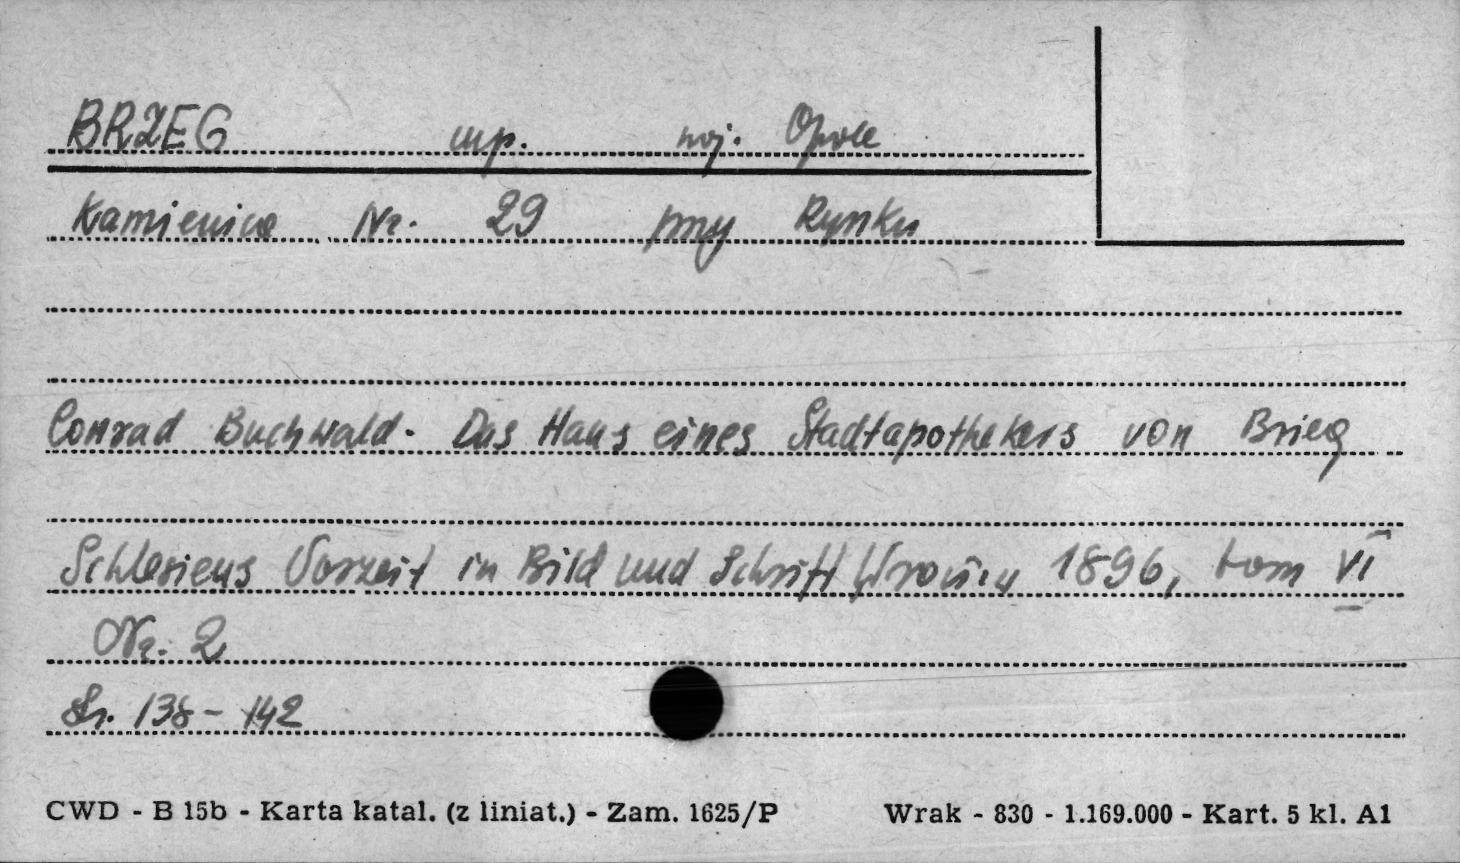 BRZEG mp. woj. Opole
Kamienica Nr. 29 przy Rynku
Conrad Buchwald. Das Haus eines Stadtapothekers von Brieg
Schlesiens Vorzeit in Bild und Schrift 1896, tom VI
Nr. 2
Str. 138 - 142
CWD - B 15b - Karta katal. (z liniat.) - Zam. 1625/P Wrak - 830 - 1.169.000 - Kart. 5 kl. A1